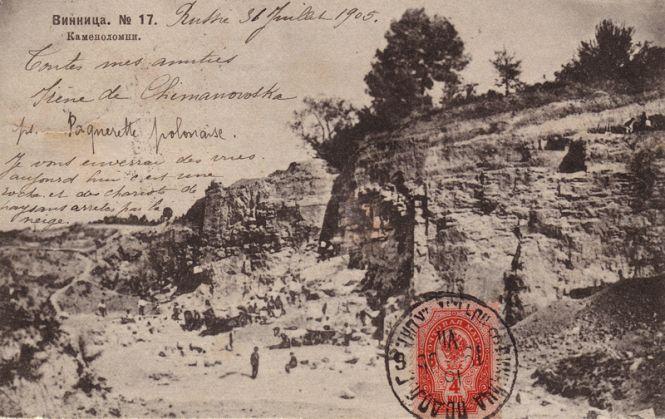 Винница. № 17.
Каменоломни.
Russie 31 Juillet 1905.
Toutes mes amitiés
Irène de Chimanowska
ps. Paquerette polonaise.
Je vous enverrai des vues
aujourd'hui c'est une
et des chariots de
paysans arretés par la
neige.
4
КОП.